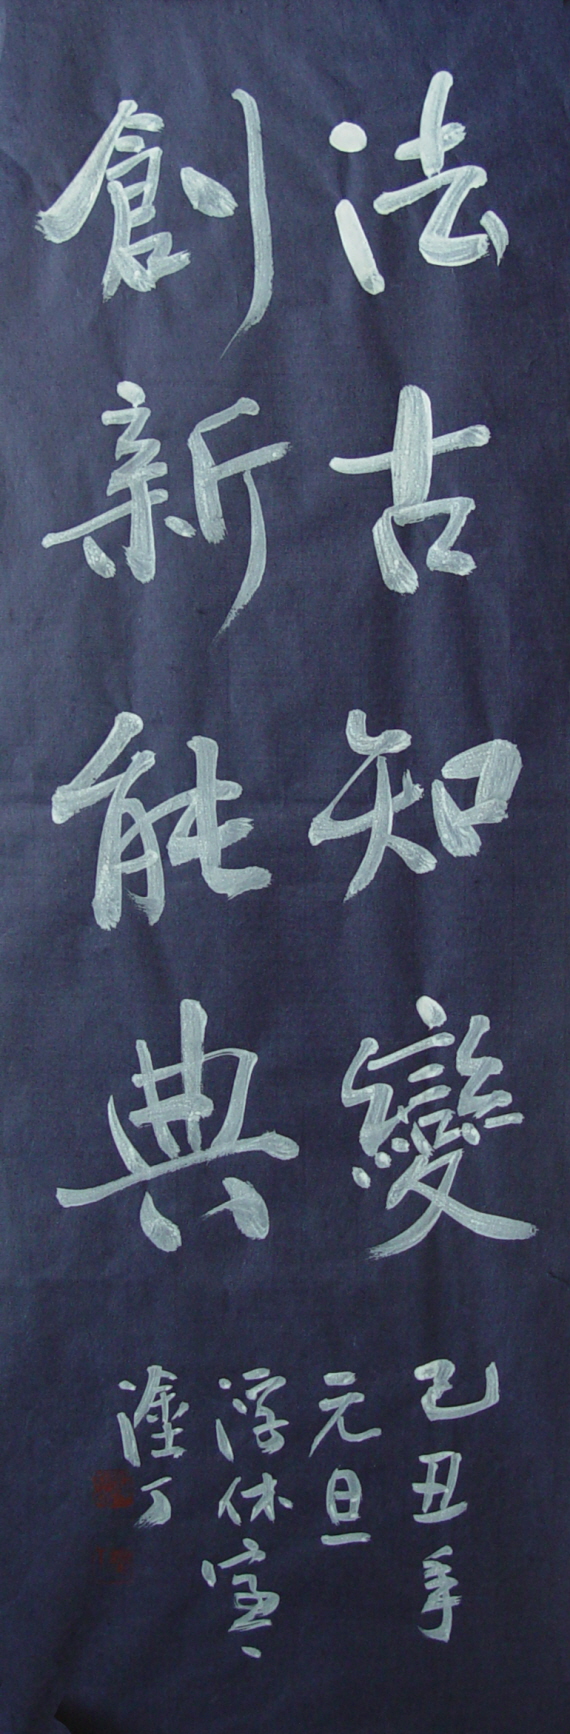 法古知變
創新能典
己丑年
元旦
浮休室
塗丁